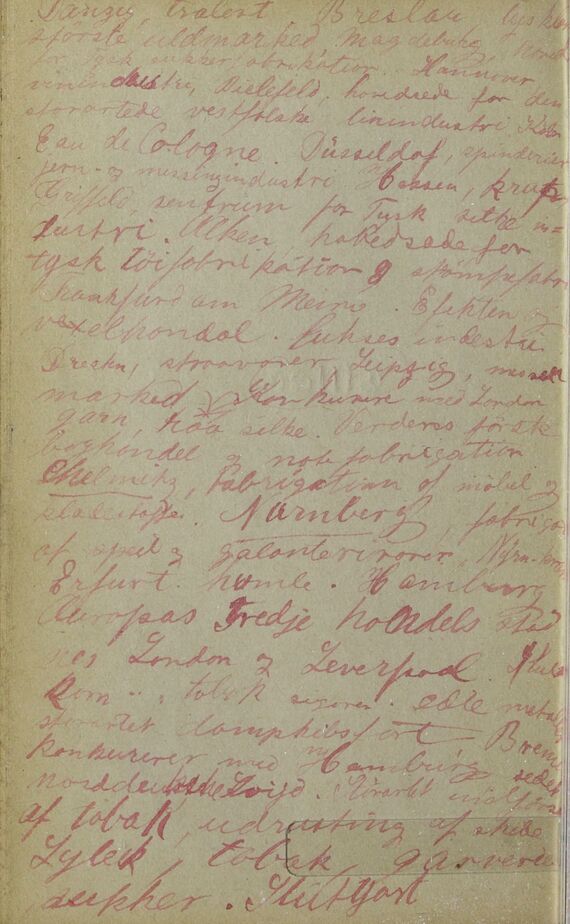 Danzig, tralast Breslau Tysklan
største uldmarked Magdeburg, hoved
for Tysk sukker fabrikation. Hannover
vinindustri, Bielefeld, hovedsede for den
storartede vestfolske linindustri. Køln
Eau de Cologne. Düsseldof, spinderier
jern- og messingindustri Hessen, krup
Kriffeld, sentrum for Tysk silke in=
dustri. Aken, hovedsede for
tysk töifabrikation og strömpefabri
Frankfurd am Meine. Efekten og
vexelhandal. Luksesindestri
Dresten, straavarer Leipzig, messe
marked Konkurere med London
garn, raa silke. Verdens förste
boghandel og notefabrigation
Chelmitz, Fabrigation af möbel og
Nürnberg, fabriga
af speil og galanterivarer, Nürn
Erfurt. humle. Hamburg
Auropas Tredje handels stad
næs London og Leverpool.
kom tobak sigarer. edle metaller
storartet dampskibsfart Breme
konkurerer med Hamburg sede
norddeutsche Loijd.
af tobak, udrusting af skibe
Lybek, tobak, garverie
sukker. Stutgart